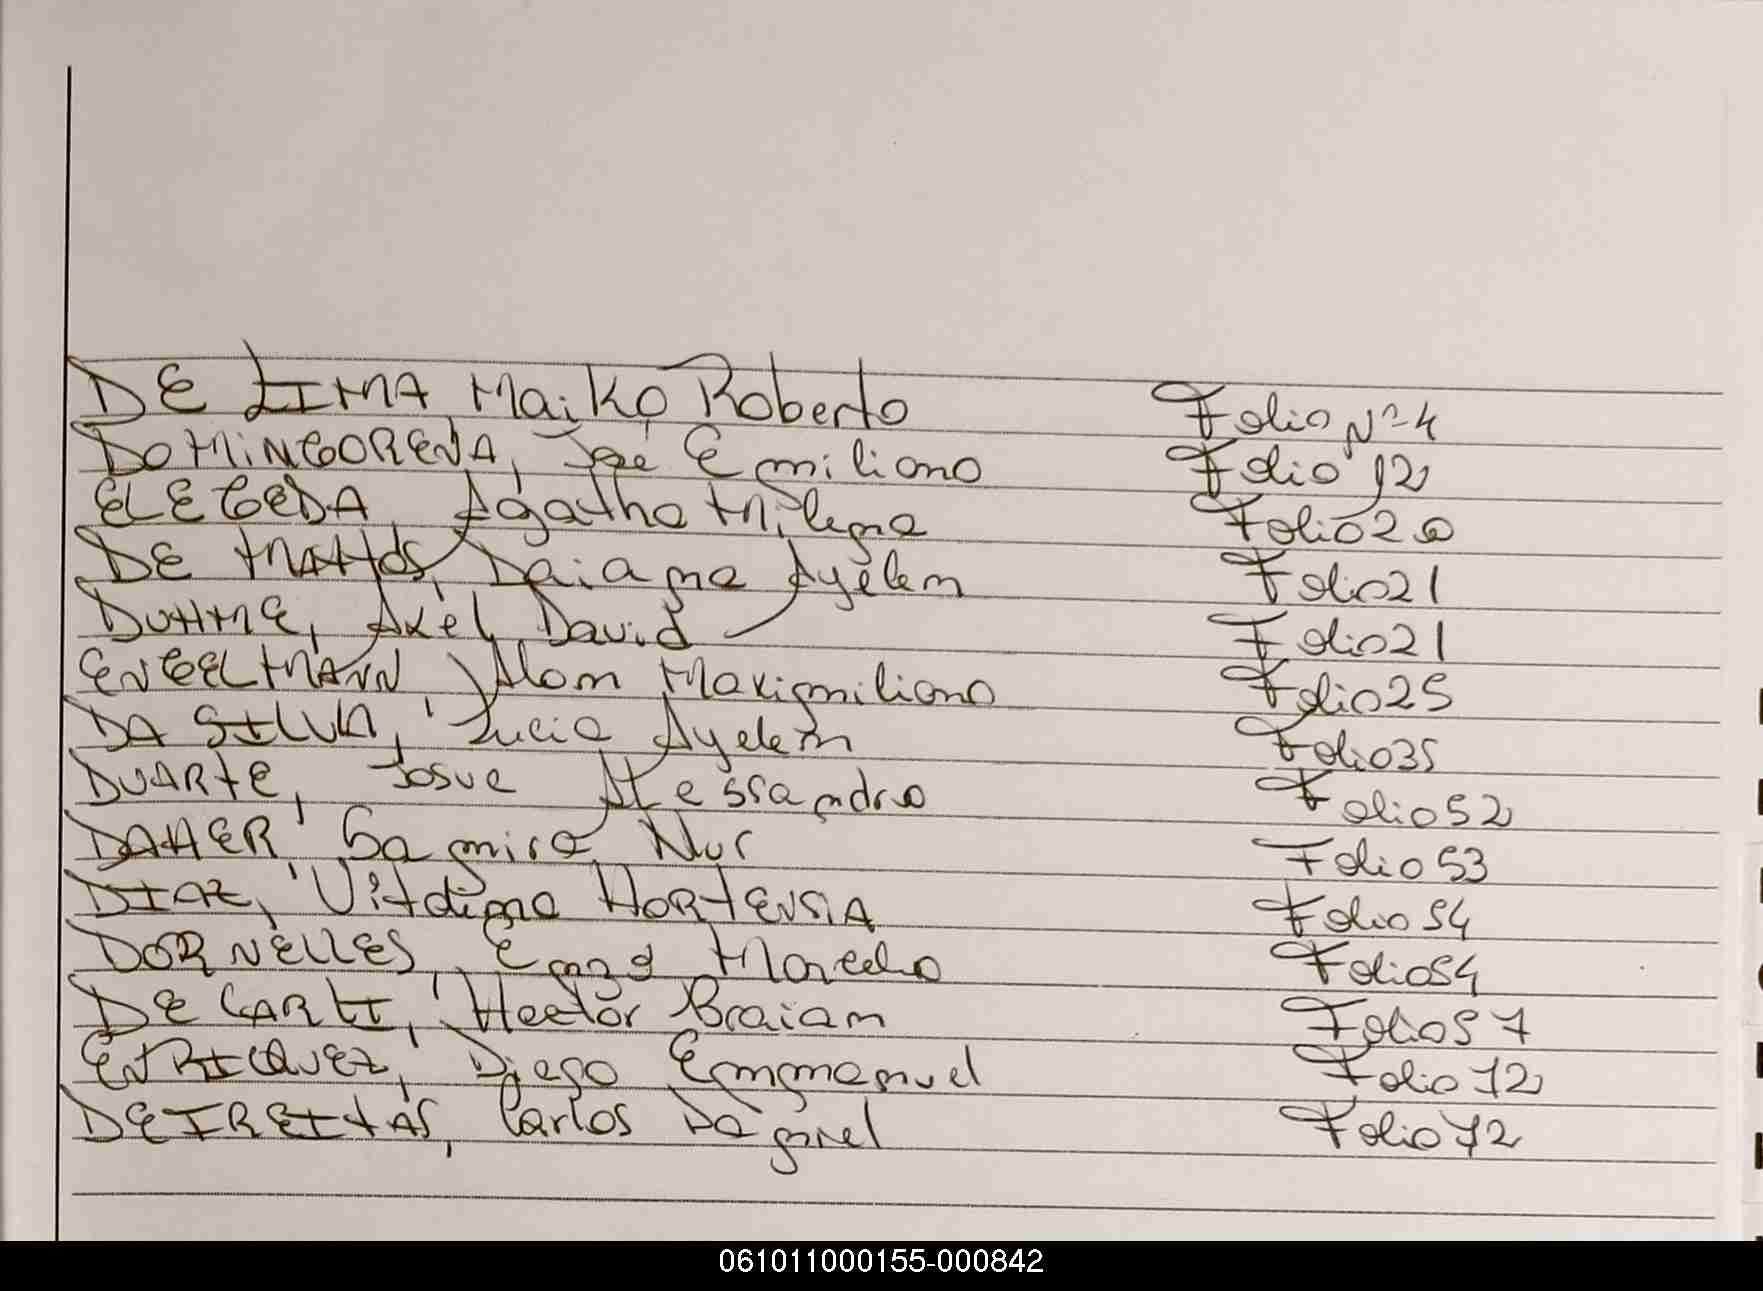 DE LIMA, Maiko Roberto Folio Nº 4
DOMINGORENA, José Emiliano Folio 12
ELEGEDA, Agatha Milena Folio 20
DE MATTOS, Daiana Ayelen Folio 21
DUHME, Axel David Folio 21
ENGELMANN, Alan Maximiliano Folio 25
DA SILVA, Lucia Ayelen Folio 35
DUARTE, Josue Alessandro Folio 52
DAHER, Samira Nur Folio 53
DIAZ, HORTENSIA Folio 54
DORNELLES, Marcelo Folio 54
DE CARLI, Hector Braian Folio 57
ENRIQUEZ, Diego Emmanuel Folio 72
DEFREITAS, Carlos Daniel Folio 72
061011000155-000842